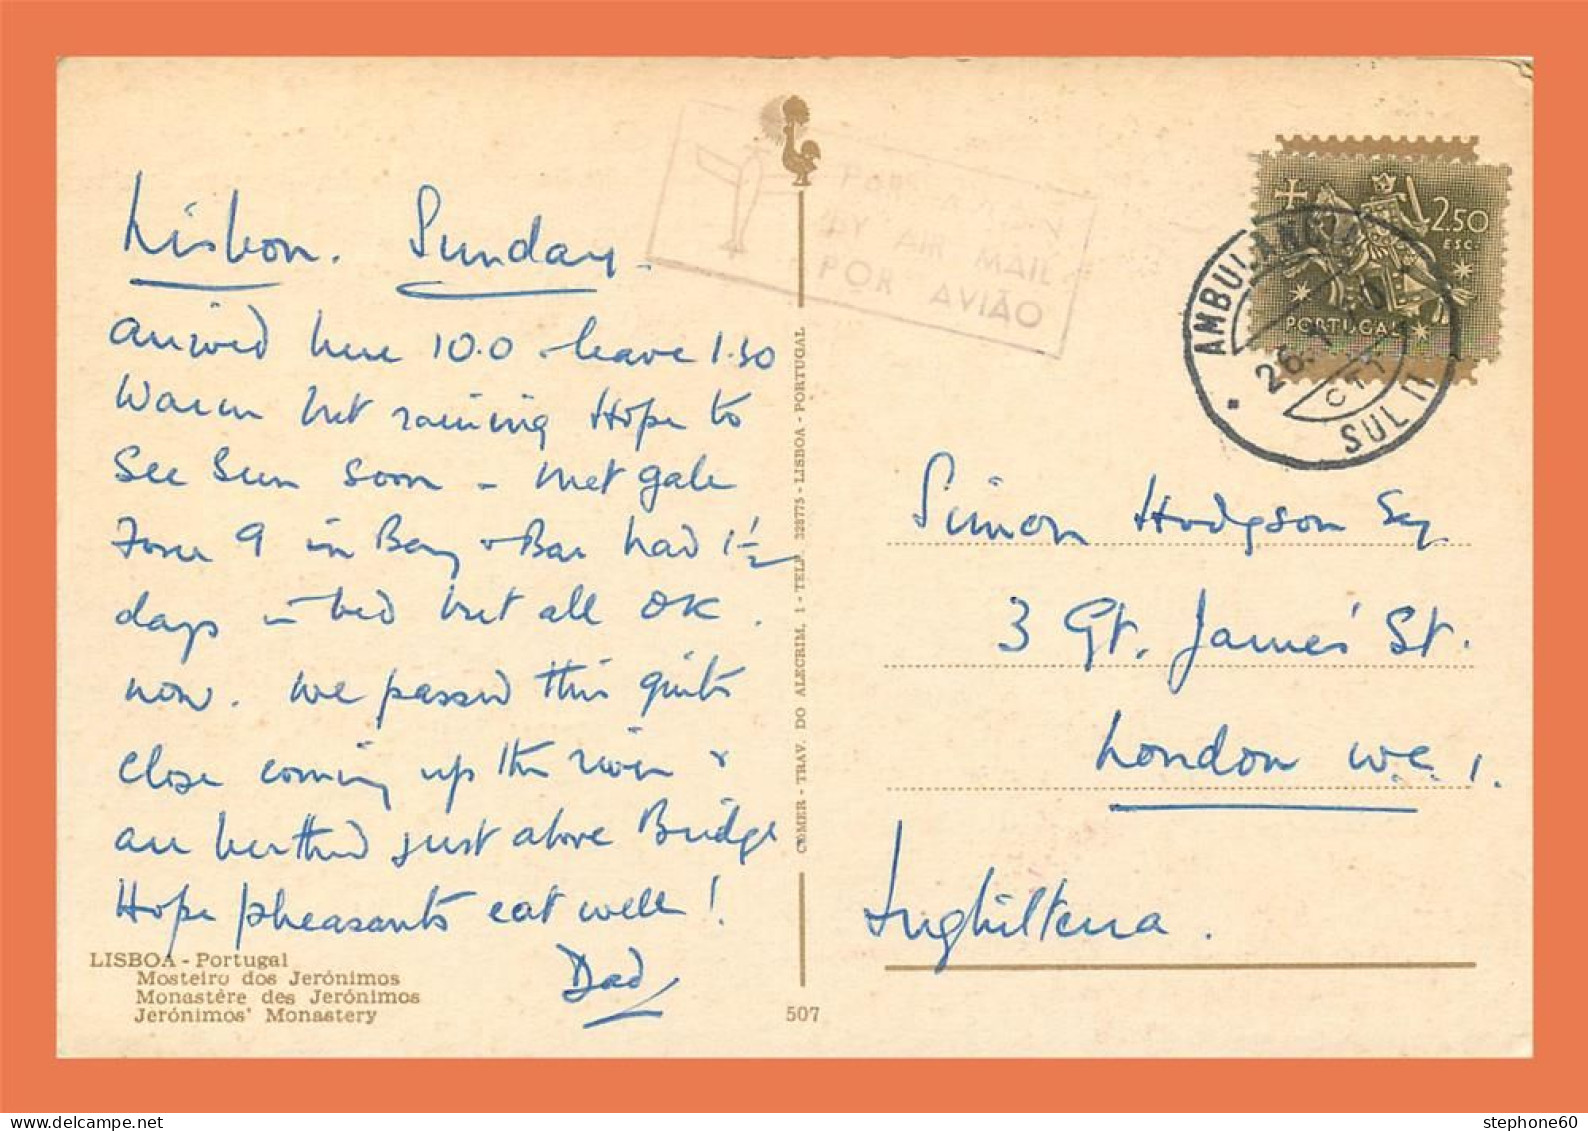 Lisbon. Sunday.
Arrived here 10.0 - leave 1.30
Warm but raining Hope to
see sun soon - met gale
Force 9 in Bay & Bar had 1½
days in bed but all OK.
now. We passed this quite
close coming up the river &
are berthed just above Bridge
Hope pheasants eat well!
Dad
LISBOA - Portugal
Mosteiro dos Jerónimos
Monastère des Jerónimos
Jerónimos' Monastery
507
COMER - TRAV. DO ALECRIM, 1 - TELF. 328775 - LISBOA - PORTUGAL
PAR AVION
BY AIR MAIL
POR AVIÃO
2$50
ESC.
PORTUGAL
AMBULANCIA
SUL II
26.
CTT
Simon Hodgson Esq
3 Gt. James' St.
London WC1.
Inghilterra.
stephone60